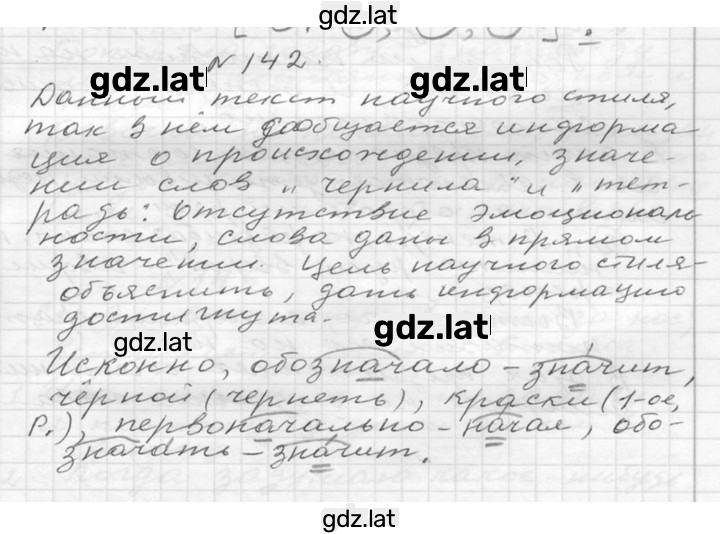 gdz.lat
N 142.
gdz.lat gdz.lat
Данный текст научного стиля,
так в нём сообщается информа
ция о происхождении, значе-
нии слов „чернила" и „тет-
радь". Отсутствие эмоциональ
ности, слова даны в прямом
значении. Цель научного стиля-
объяснить, дать информацию
достигнута.
gdz.lat
gdz.lat
Исконно, обозначало - значит,
чёрной (чернеть), краски (1-ое,
Р.), первоначально - начал, обо-
значать - значит.
gdz.lat